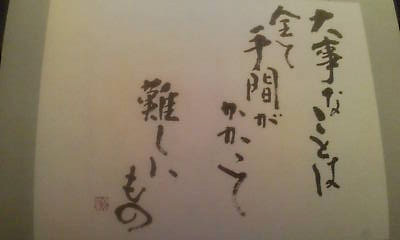 大事なことは
全て
手間が
かかって
難しい
もの